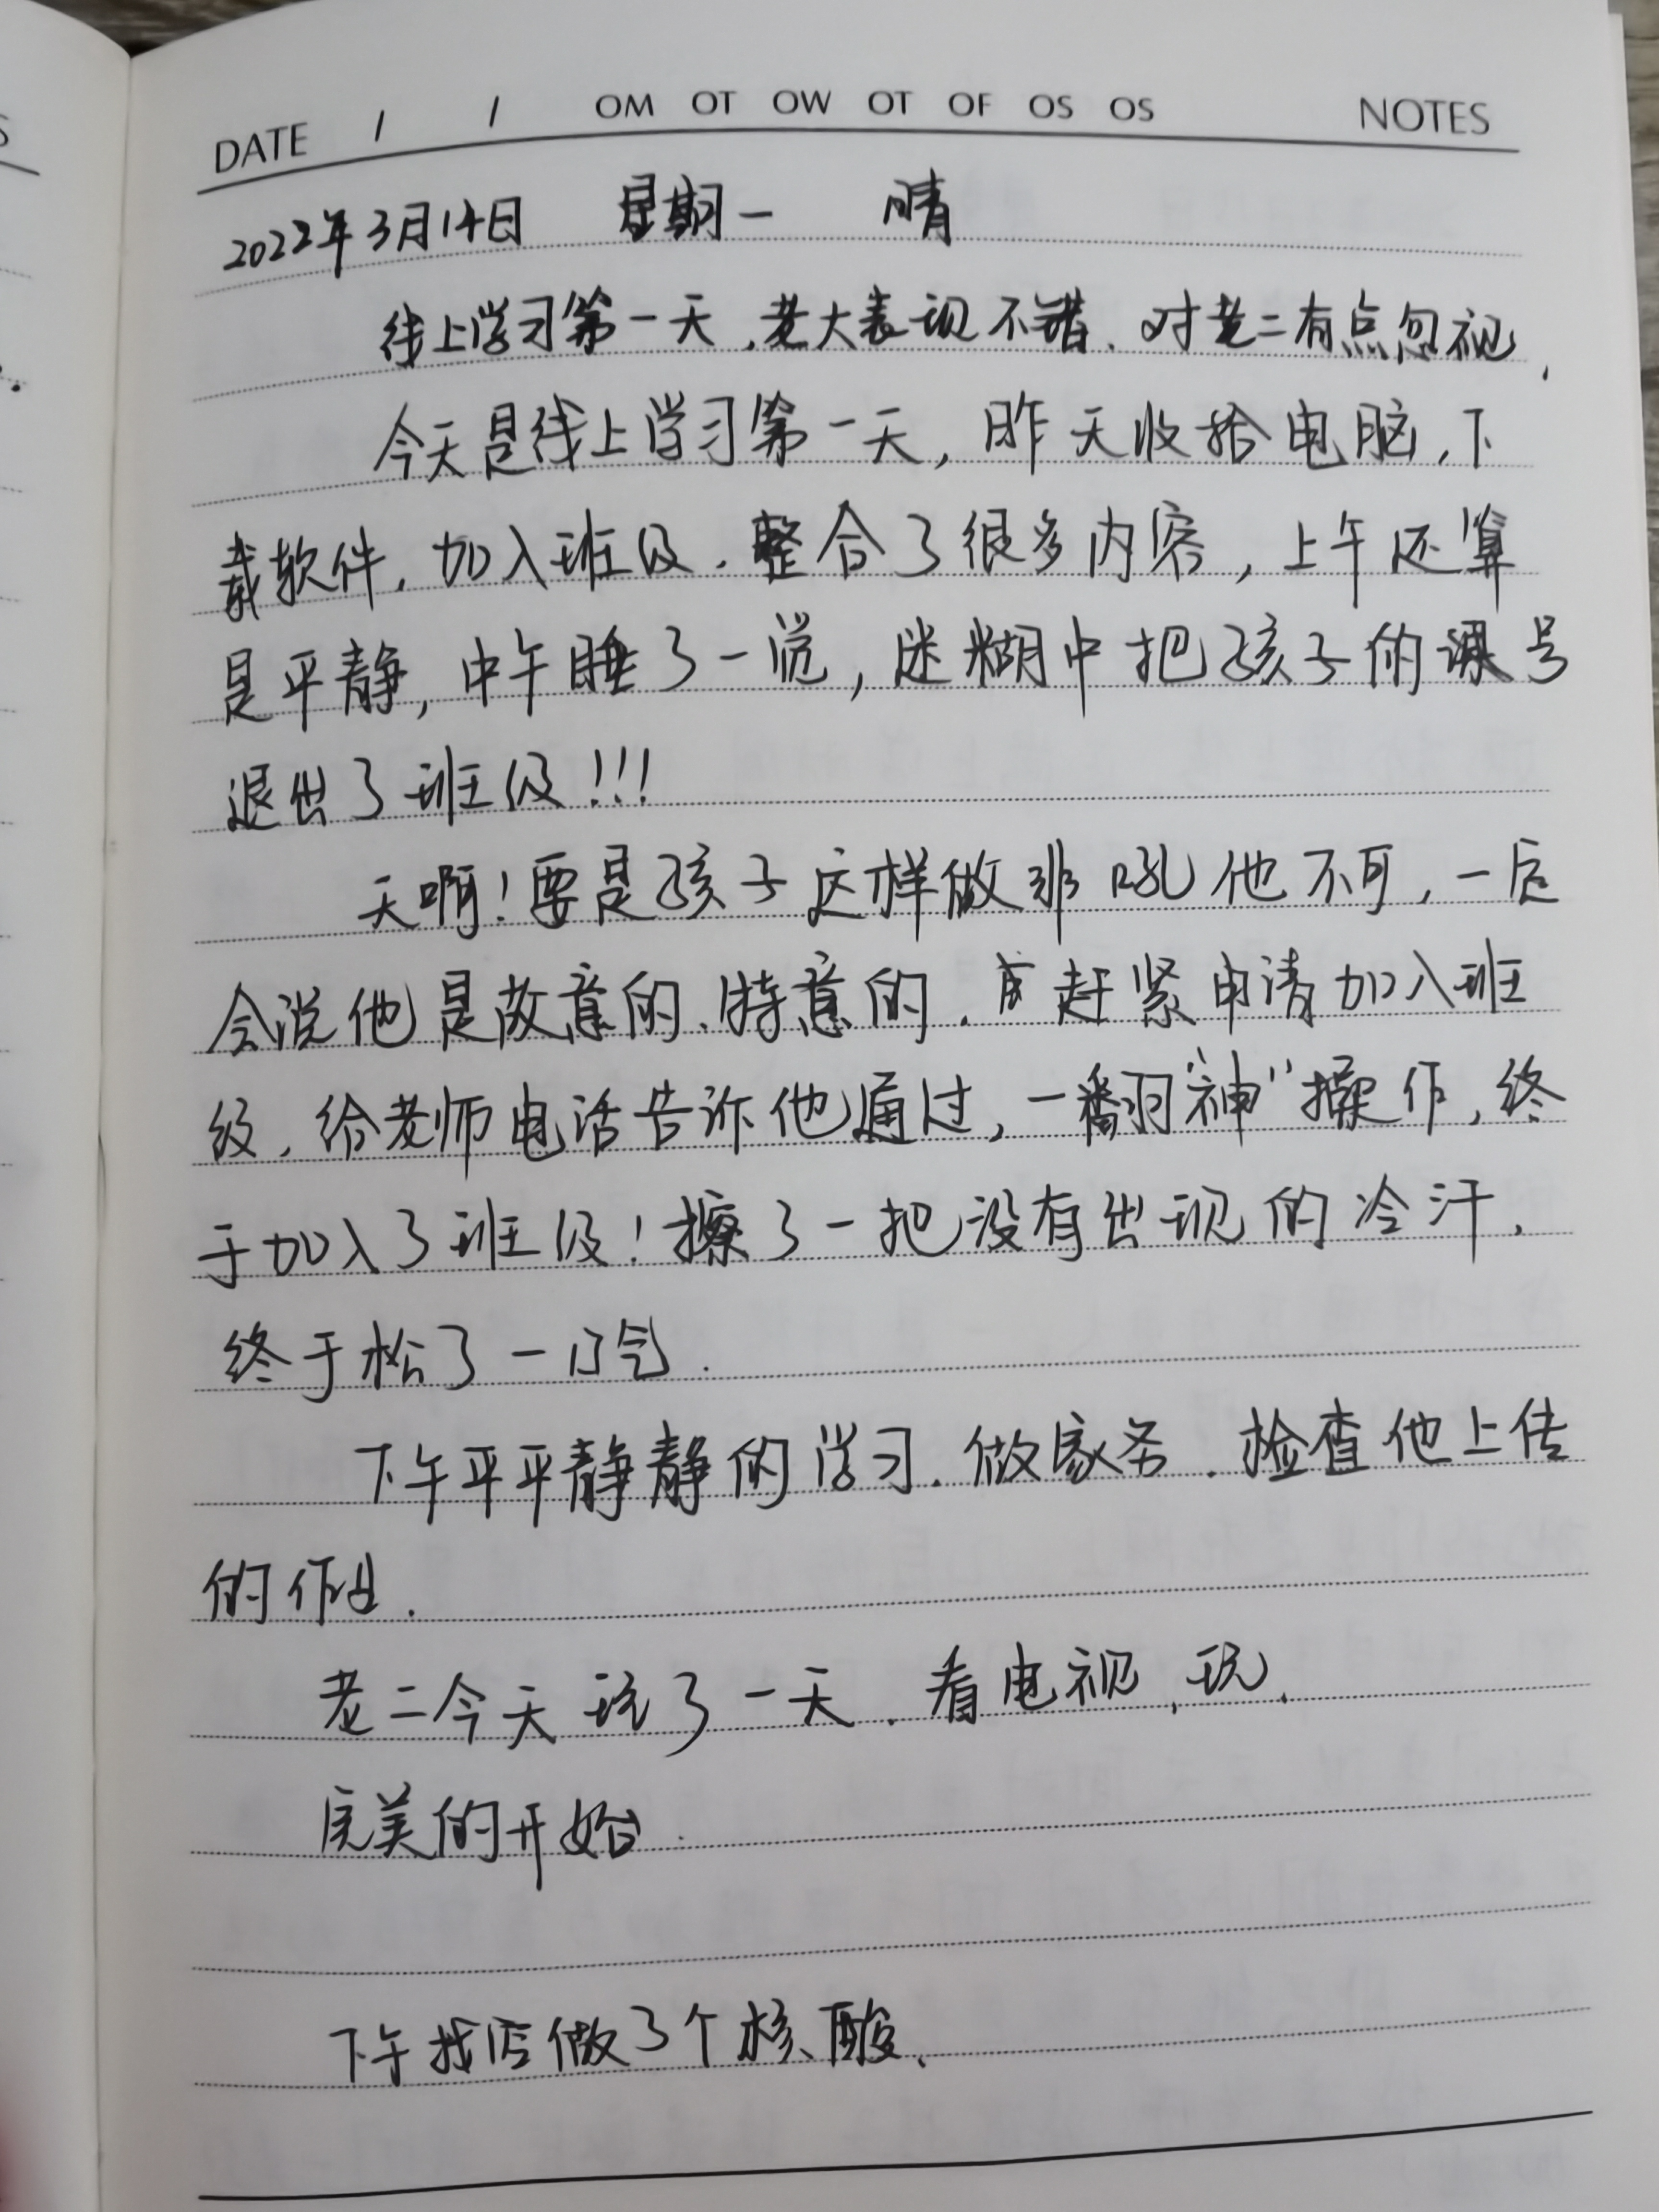 DATE / / OM OT OW OT OF OS OS NOTES
2022年3月14日 星期一 晴
线上学习第一天,老大表现不错,对老二有点忽视,
今天是线上学习第一天,昨天收拾电脑,下
载软件,加入班级,整合了很多内容,上午还算
是平静,中午睡了一觉,迷糊中把孩子的课号
退出了班级!!!
天啊!要是孩子这样做非吼他不可,一定
会说他是故意的、特意的.赶紧申请加入班
级,给老师电话告诉他通过,一番"神"操作,终
于加入了班级!擦了一把没有出现的冷汗,
终于松了一口气.
下午平平静静的学习.做家务.检查他上传
的作业.
老二今天玩了一天.看电视,玩,
完美的开始.
下午找店做了个核酸,